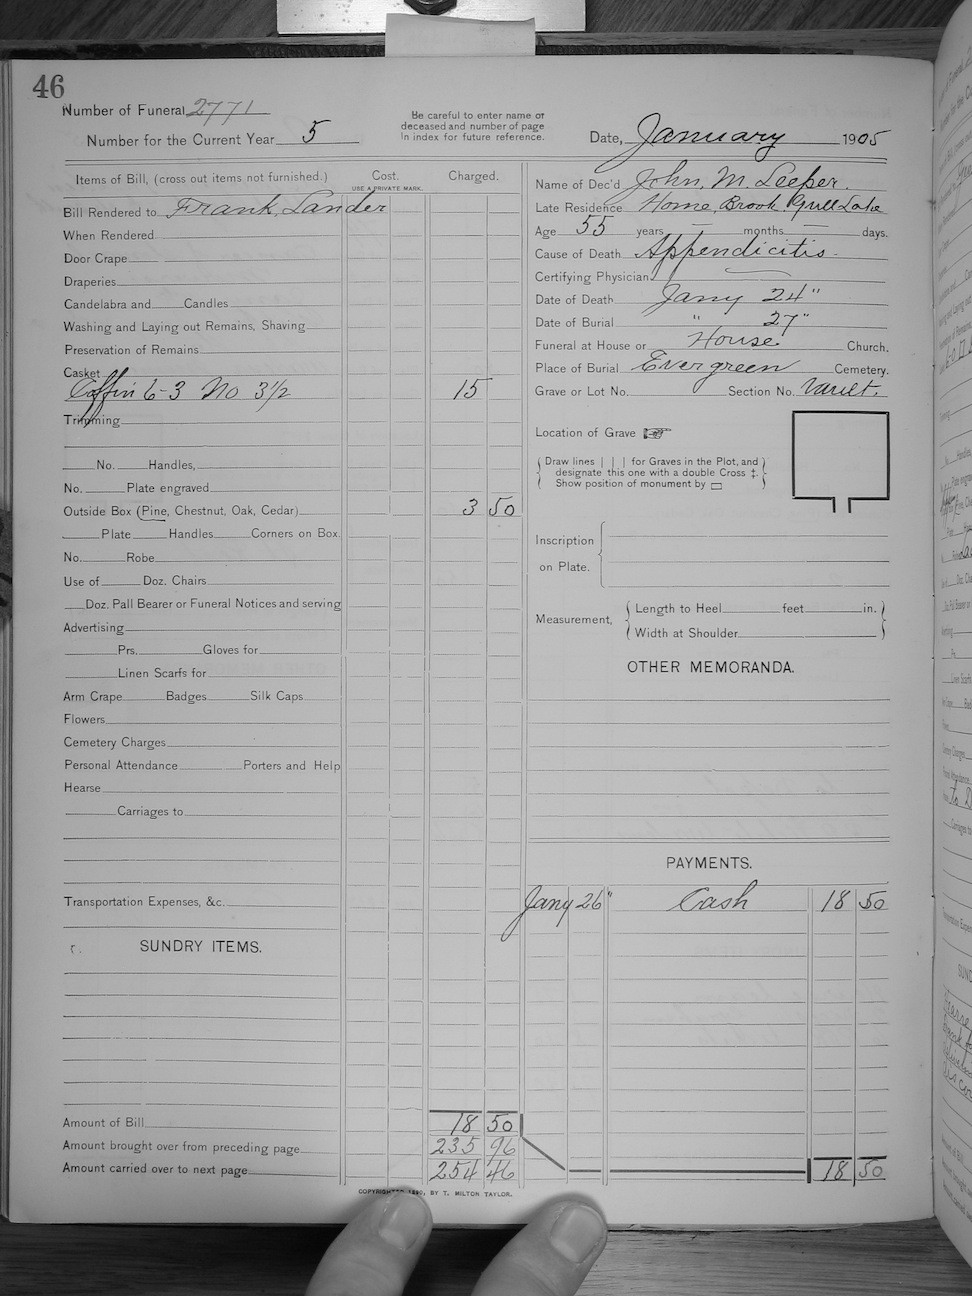 46
Number of Funeral 2771
Number for the Current Year 5
Be careful to enter name of
deceased and number of page
in index for future reference.
Date, January 1905
Items of Bill, (cross out items not furnished.) Cost. Charged.
USE A PRIVATE MARK.
Bill Rendered to Frank Lander
When Rendered
Door Crape
Draperies
Candelabra and Candles
Washing and Laying out Remains, Shaving
Preservation of Remains
Casket
Coffin 6-3 No 3½ 15
Trimming
No. Handles,
No. Plate engraved
Outside Box (Pine, Chestnut, Oak, Cedar) 3 50
Plate Handles Corners on Box.
No. Robe
Use of Doz. Chairs
Doz. Pall Bearer or Funeral Notices and serving
Advertising
Prs. Gloves for
Linen Scarfs for
Arm Crape Badges Silk Caps
Flowers
Cemetery Charges
Personal Attendance Porters and Help
Hearse
Carriages to
Transportation Expenses, &c.
SUNDRY ITEMS.
Amount of Bill 18 50
Amount brought over from preceding page 235 96
Amount carried over to next page 254 46
Name of Dec'd John, M. Leeper.
Late Residence Home, Brook, Gull Lake
Age 55 years — months — days.
Cause of Death Appendicitis.
Certifying Physician
Date of Death Jany 24"
Date of Burial " 27"
Funeral at House or House Church.
Place of Burial Evergreen Cemetery.
Grave or Lot No. Section No. Vault.
Location of Grave
Draw lines | | | for Graves in the Plot, and
designate this one with a double Cross ‡.
Show position of monument by ▭
Inscription
on Plate.
Measurement, Length to Heel feet in.
Width at Shoulder
OTHER MEMORANDA.
PAYMENTS.
Jany 26" Cash 18 50
18 50
COPYRIGHTED 1890, BY T. MILTON TAYLOR.